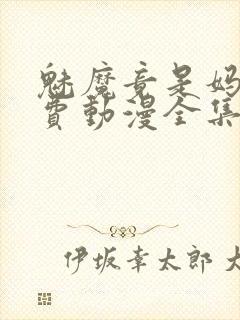 魅魔竟是妈
费動漫全集
伊坂幸太郎 大